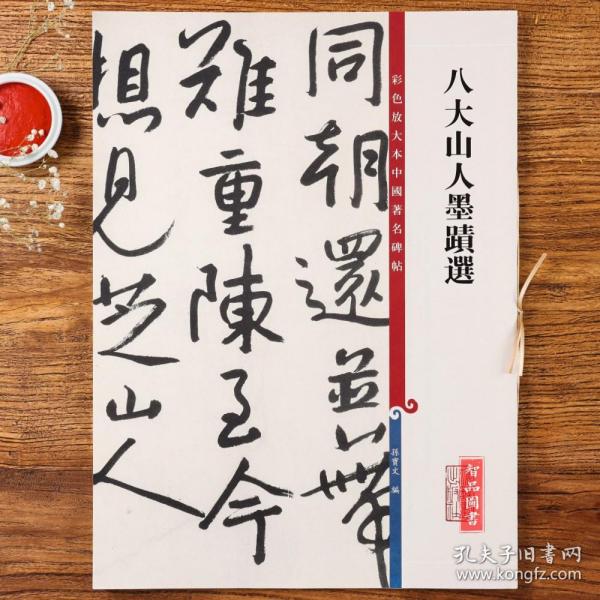 八大山人墨蹟選
彩色放大本中國著名碑帖
孫寶文 編
同朝還並萼
難重陳至今
想見芝山人
智品圖書
孔夫子旧书网
www.kongfz.com